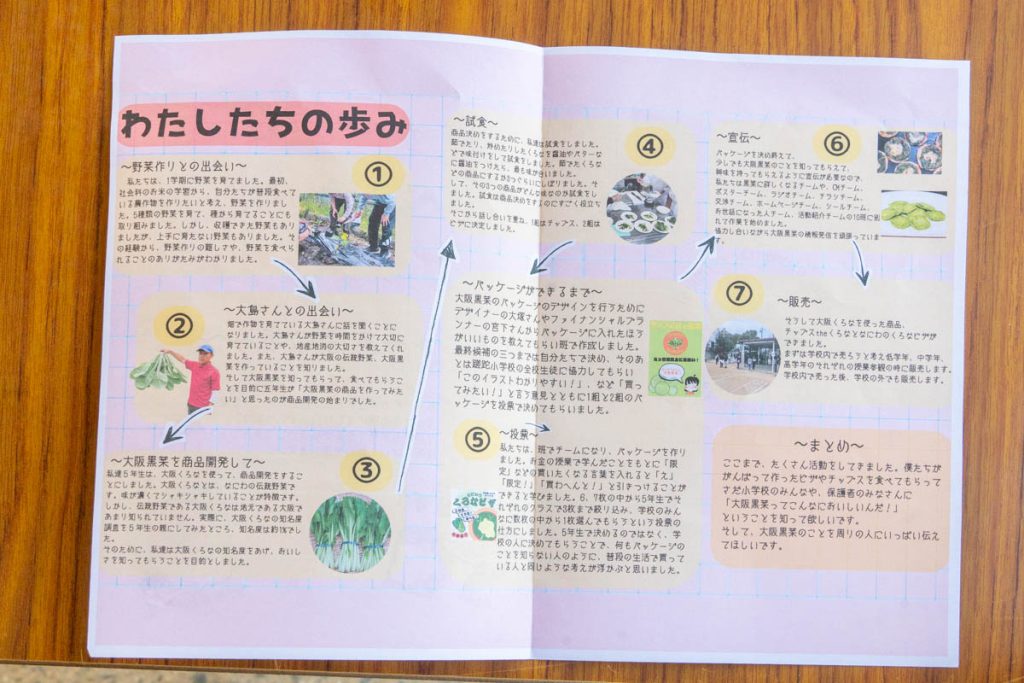 わたしたちの歩み
①
～野菜作りとの出会い～
私たちは、1学期に野菜を育てました。最初、
社会科のお米の学習から、自分たちが普段食べて
いる農作物を作りたいと考え、野菜を作りまし
た。5種類の野菜を育て、種から育てることにも
取り組みました。しかし、収穫できた野菜もあり
ましたが、上手に育たない野菜もありました。そ
の経験から、野菜作りの難しさや、野菜を食べら
れることのありがたみがわかりました。
②
～大島さんとの出会い～
畑で作物を育てている大島さんに話を聞くことに
なりました。大島さんが野菜を時間をかけて大切に
育てていることや、地産地消の大切さを教えてくれ
ました。また、大島さんが大阪の伝統野菜、大阪黒
菜を作っていることを知りました。
そして大阪黒菜を知ってもらって、食べてもらうこと
を目的に五年生が「大阪黒菜の商品を作ってみた
い」と思ったのが商品開発の始まりでした。
③
～大阪黒菜を商品開発して～
私達5年生は、大阪くろなを使って、商品開発をするこ
とにしました。大阪くろなとは、なにわの伝統野菜で
す。味が濃くてシャキシャキしていることが特徴です。
しかし、伝統野菜である大阪くろなは地元である大阪で
あまり知られていません。実際に、大阪くろなの知名度
調査を5年生の親にしてみたところ、知名度は約1%でし
た。
そのために、私達は大阪くろなの知名度をあげ、おいし
さを知ってもらうことを目的としました。
④
～試食～
商品決めをするために、私達は試食をしました。
茹でたり、炒めたりしたくろなを醤油やバターな
どで味付けをして試食をしました。茹でたくろな
に醤油をつけたら、最も味が合いました。
どの商品にするか3つぐらいにしぼりました。そ
して、その3つの商品がどんな味なのか試食をし
ました。試食は商品決めをするのにすごく役立ち
ました。
そこから話し合いを重ね、1組はチップス、2組は
ピザに決定しました。
～パッケージができるまで～
大阪黒菜のパッケージのデザインを行うために
デザイナーの大塚さんやファイナンシャルプラ
ンナーの宮下さんからパッケージに入れたほう
がいいものを教えてもらい班で作成しました。
最終候補の三つまでは自分たちで決め、そのあ
とは蹉跎小学校の全校生徒に協力してもらい
「このイラストわかりやすい!」、など「買っ
てみたい!」と言う意見とともに1組と2組のパ
ッケージを投票で決めてもらいました。
⑤
～投票～
私たちは、班でチームになり、パッケージを作り
ました。お金の授業で学んだことをもとに「限
定」などの買いたくなる言葉を入れると「え」
「限定!」「買わへんと!」と引きつけることが
できると学びました。6、7枚の中から5年生でそ
れぞれのクラスで3枚まで絞り込み、学校のみん
なに数枚の中から1枚選んでもらうという投票の
仕方にしました。5年生で決めるのではなく、学
校の人に決めてもらうことで、何もパッケージの
ことを知らない人のように、普段の生活で買って
いる人と同じような考えが浮かぶと思いました。
くろなピザ
⑥
～宣伝～
パッケージを決め終えて、
少しでも大阪黒菜のことを知ってもらえて、
興味を持ってもらえるように宣伝が必要なので、
私たちは黒菜に詳しくなるチームや、CMチーム、
ポスターチーム、ラジオチーム、チラシチーム、
交渉チーム、ホームページチーム、シールチーム、
お世話になった人チーム、活動紹介チームの10班に別
れて作業を始めました。
協力し合いながら大阪黒菜の情報発信を頑張っていま
す。
⑦
～販売～
そうして大阪くろなを使った商品、
チップスtheくろなとなにわのくろなピザが
できました。
まずは学校内で売ろうと考え低学年、中学年、
高学年のそれぞれの授業参観の時に販売します。
学校内で売った後、学校の外でも販売します。
～まとめ～
ここまで、たくさん活動をしてきました。僕たちが
がんばって作ったピザやチップスを食べてもらって
さだ小学校のみんなや、保護者のみなさんに
「大阪黒菜ってこんなにおいしいんだ!」
ということを知って欲しいです。
そして、大阪黒菜のことを周りの人にいっぱい伝え
てほしいです。